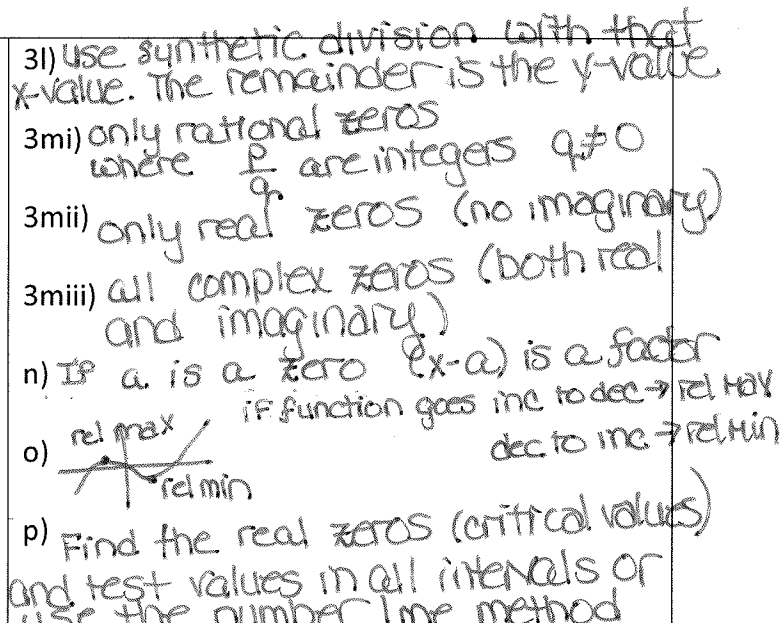 3l) use synthetic division with that
x-value. The remainder is the y-value
3mi) only rational zeros
where p/q are integers q≠0
3mii) only real zeros (no imaginary)
3miii) all complex zeros (both real
and imaginary)
n) If a is a zero (x-a) is a factor
if function goes inc to dec → rel max
dec to inc → rel min
o) rel max
rel min
p) Find the real zeros (critical values)
and test values in all intervals or
use the number line method